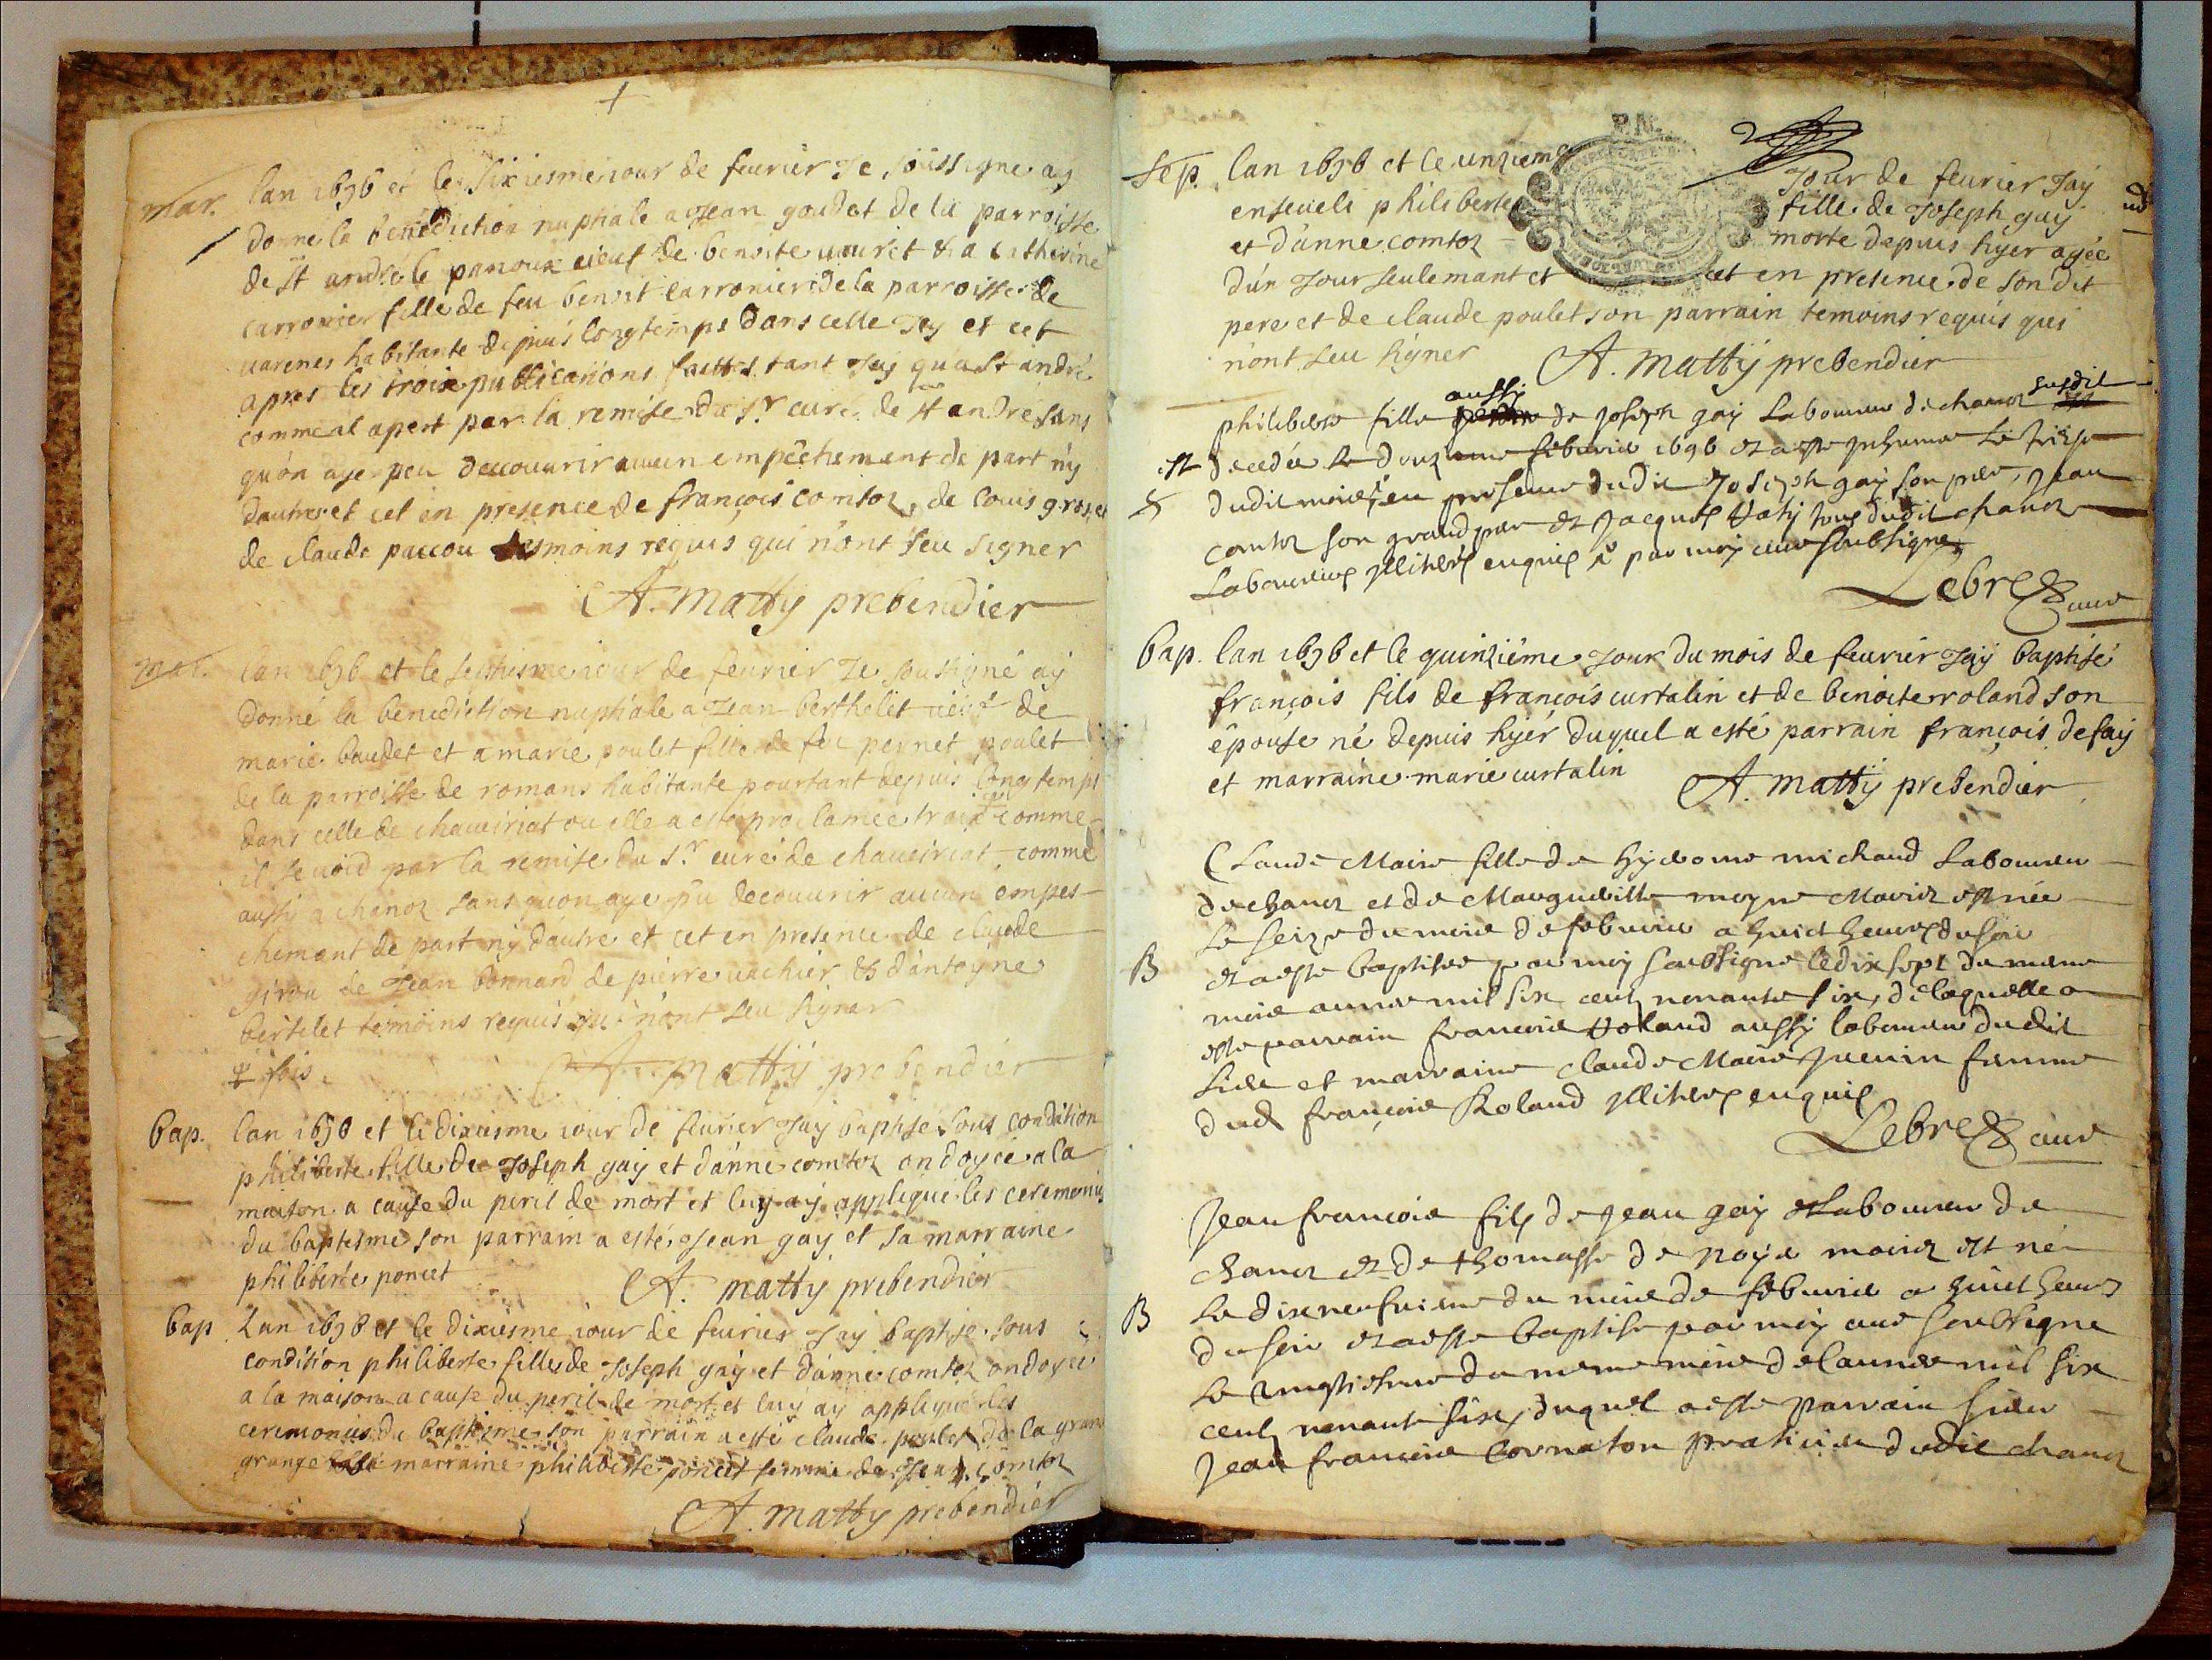 mar. lan 1696 et le sixiesme iour de feurier Je soussigne ay
donne la benediction nuptiale a Jean goudet de la parroisse
de st andré le panoux veuf de benoite & a Catherine
carronier fille de feu benoit carronier de la parroisse de
varenes habitante depuis longtemps dans celle Icy et cet
apres les trois publications faittes tant Icy qua st andré
comme il apert par la remise du sr curé de st andre sans
quon aye peu decouurir aucun empêchement de part ny
dautre et cet en presence de françois comtoz, de louis gros, et
de claude paccou tesmoins requis qui nont seu signer
A. Matty prebendier
mar. lan 1696 et le septiesme iour de feurier Je soussigné ay
donne la benediction nuptiale a Jean berthelet veuf de
marie baudet et a marie poulet fille de feu pernet poulet
de la parroisse de romans habitante pourtant depuis longtemps
dans celle de chaveiriat ou elle a esté proclamée trois comme
il se void par la remise du sr curé de chaveiriat, comme
aussy a chanoz sans quon aye pu decouurir aucun empes-
chement de part ny dautre et cet en presence de claude
girou de Jean bonnard de pierre vachier & dantoyne
bertelet temoins requis qui nont seu signer
fois. A. Matty prebendier
bap. lan 1696 et le dixiesme iour de feurier Jay baptisé sous condition
philiberte fille de Joseph gay et danne comtoz ondoyée a la
maison a cause du peril de mort et luy ay applique les ceremonies
du baptesme son parrain a esté Jean gay et sa marraine
philiberte poncet A. matty prebendier
bap. Lan 1696 et le dixiesme iour de feurier Jay baptisé sous
condition philiberte fille de Joseph gay et danne comtoz ondoyée
a la maison a cause du peril de mort et luy ay appliqué les
ceremonies du baptesme son parrain a esté claude poulet de la grand
grange marraine philiberte poncet femme de Jean comtoz
A. matty prebendier
Sep. lan 1696 et le unzieme Jour de feurier Jay
enseueli philiberte fille de Joseph gay
et danne comtoz morte depuis hyer agée
dun Jour seulemant et cet en presence de son dit
pere et de claude poulet son parrain temoins requis qui
nont seu signer A. Matty prebendier
philiberte fille aussy de Joseph gay Laboureur de chanoz susdit
est decedée le douzieme febvrier 1696 et a esté Inhumée le treize
S dudit mois, en presence dudit Joseph gay son pere, Jean
comtoz son grand pere et Jacques tous dudit chanoz
Laboureurs illiterez enquis par moy curé soubsigné
Lebrez curé
bap. lan 1696 et le quinzième Jour du mois de feurier Jay baptisé
françois fils de françois curtalin et de benoite roland son
épouse né depuis hyér duquel a esté parrain françois defay
et marraine marie curtalin A. Matty prebendier
Claude Marie fille de hyerome michaud Laboureur
de chanoz et de Marguerite moyne Mariez est née
le seize du mois de febvrier a huict heures du soir
B et a esté baptisée par moy soubsigné le dix sept du mesme
mois année mil six cent nonante six, de laquelle a
esté parrain françois Roland aussy laboureur dudit
lieu et marraine claude Marie Juenin femme
dud françois Roland illiterez enquis
Lebrez curé
Jean françois filz de Jean gay Laboureur de
chanoz et de thomasse de noye mariez est né
B le dixneufvieme du mois de febvrier a huict heures
du soir et a esté baptisé par moy curé soubsigné
le vingtiesme du mesme mois de lannée mil six
cent nonante six, duquel a esté parrain sieur
Jean françois Cornaton praticien dudit chanoz